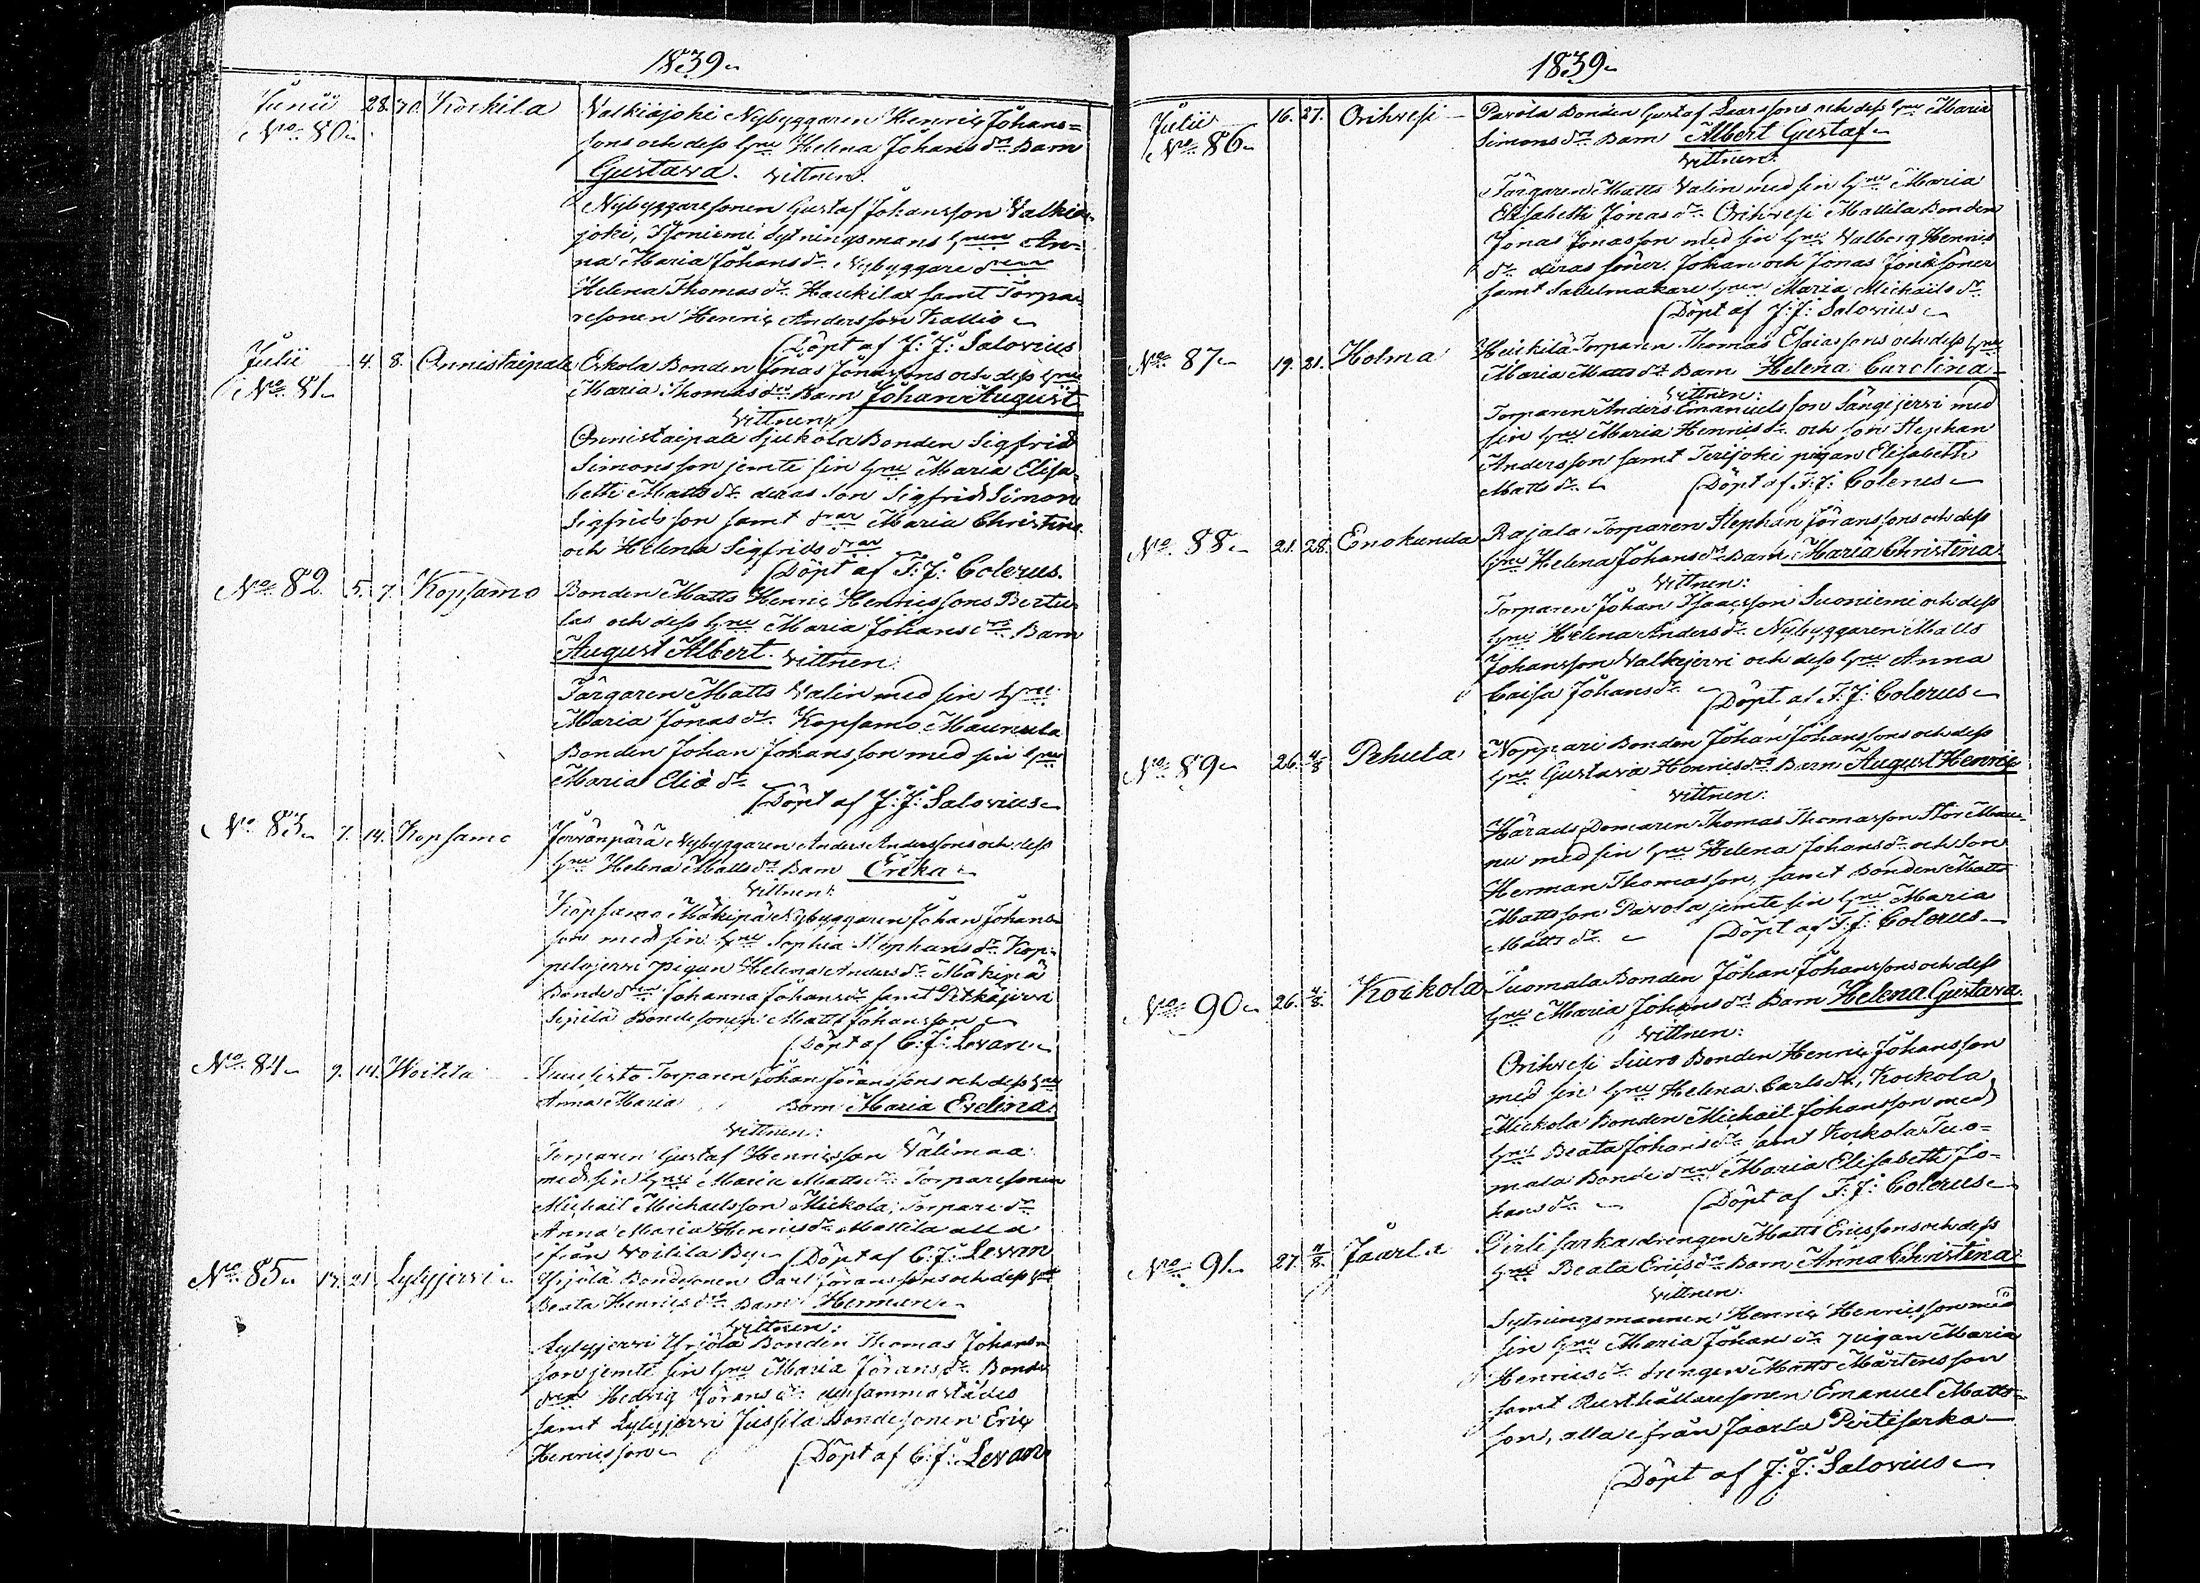 1839
Junii 28. 30. Kockila Valkiajoki Nybyggaren Henric Johans=
No 80 sons och dess Hru Helena Johans dr Barn
Gustava. Vittnen:
Nybyggaresonen Gustaf Johansson Valkia-
joki, Isoniemi Sytningsmans Hrun An=
na Maria Johans dr. Nybyggare dren
Helena Thomas dr Haukilax samt Torpa-
resonen Henric Andersson Kallio
(Döpt af J: J: Salovius
Julii 4. 8. Onnistaipale Eskola Bonden Jonas Jonassons och dess Hru
No 81 Maria Thomas drs Barn Johan August
Vittnen:
Onnistaipale Sjukola Bonden Sigfrid
Simonsson jemte sin Hru Maria Elisa-
beth Matts dr. deras son Sigfrid Simon
Sigfridsson samt drar Maria Christina
och Helena Sigfrids drar
(Döpt af F: J: Colerus.
No 82. 5. 7. Kopsamo Bonden Matts Henric Henricssons Bertu-
las och dess Hru Maria Johans drs Barn
August Albert. Vittnen:
Färgaren Matts Valin med sin Hru
Maria Jonas dr. Kopsamo Maunula
Bonden Johan Johansson med sin Hru
Maria Eliæ dr
(Döpt af J: J: Salovius
No 83 7. 14. Kopsamo Jervänpärä Nybyggaren Anders Anderssons och dess
Hru Helena Matts drs Barn Erika
Vittnen:
Kopsamo Mäkipä Nybyggaren Johan Johans-
son med sin Hru Sophia Stephans dr Kop-
pelojervi pigan Helena Anders dr Mäkipä
Bonde dren Johanna Johans dr samt Pitkäjervi
Sipilä Bondesonen Matts Johansson
(Döpt af C: J: Levan
No 84 9. 14. Woitila Torparen Johan Jöranssons och dess Hru
Anna Maria Barn Maria Evelina
Vittnen:
Torparen Gustaf Henricsson Välimaa
med sin Hru Maria Matts dr Torparesonen
Michaël Michaëlsson Mickola, Torpare dr
Anna Maria Henrics dr Mattila alla
ifrån Woitila By (Döpt af C: J: Levan
No 85 17. 21. Lylyjervi Yrjölä Bondesonen Carl Göranssons och dess Hru
Beata Henrics drs Barn Herman
Vittnen:
Lylyjervi Yrjölä Bonden Thomas Johans-
son jemte sin Hru Maria Jörans dr Bonde
dren Hedvig Jörans dr dersammastädes
samt Lylyjervi Jussila Bondesonen Eric
Henricsson (Döpt af C: J: Levan
1839
Julii 16. 27. Orihvesi Pavola Bonden Gustaf Laarssons och dess Hru Maria
No 86 Simons drs Barn Albert Gustaf
Vittnen:
Färgaren Matts Valin med sin Hru Maria
Elisabeth Jonas dr. Orihvesi Mattila Bonden
Jonas Jonasson med sin Hru Valborg Henrics
dr. deras söner Johan och Jonas Jonæ söner
samt Sadelmakare Hrun Maria Michaëls dr
(Döpt af J: J: Salovius
No 87 19. 21. Holma Heikilä Torparen Thomas Esaiassons och dess Hru
Maria Matts drs Barn Helena Carolina
Vittnen:
Torparen Anders Emanuelsson Sängijervi med
sin Hru Maria Henrics dr och son Stephan
Andersson samt Terijoki pigan Elisabeth
Matts dr. (Döpt af F: J: Colerus
No 88 21. 28. Enokunda Rajala Torparen Stephan Jöranssons och dess
Hru Helena Johans drs Barn Maria Christina
Vittnen:
Torparen Johan Isaacsson Suoniemi och dess
Hru Helena Anders dr. Nybyggaren Matts
Johansson Valkijervi och dess Hru Anna
Caisa Johans dr. (Döpt af F: J: Colerus
No 89 26. 4/8 Pehula Noppari Bonden Johan Johanssons och dess
Hru Gustava Henrics drs Barn August Henric
Vittnen:
Härads Domaren Thomas Thomasson Stor Mau-
nu med sin Hru Helena Johans dr och Son
Herman Thomasson, samt Bonden Matts
Mattsson Pavola jemte sin Hru Maria
Matts dr. (Döpt af F: J: Colerus
No 90 26. 4/8. Kockola Tuomala Bonden Johan Johanssons och dess
Hru Maria Johans drs Barn Helena Gustava
Vittnen:
Orihvesi Siuro Bonden Henric Johansson
med sin Hru Helena Carls dr, Kockola
Mickola Bonden Michaël Johansson med
Hru Beata Johans dr samt Kockola Tuo=
mala Bonde dren Maria Elisabeth Jo-
hans dr. (Döpt af F: J: Colerus
No 91 27. 11/8. Jaarla Pirtisarka drengen Matts Ericssons och dess
Hru Beata Erics drs Barn Anna Christina
Vittnen:
Sytningsmannen Henric Henricsson med
sin Hru Maria Johans dr. pigan Maria
Henrics dr. drengen Matts Mårtensson
samt Rusthållaresonen Emanuel Matts-
son, alla ifrån Jaarla Pirtisarka
(Döpt af J: J: Salovius